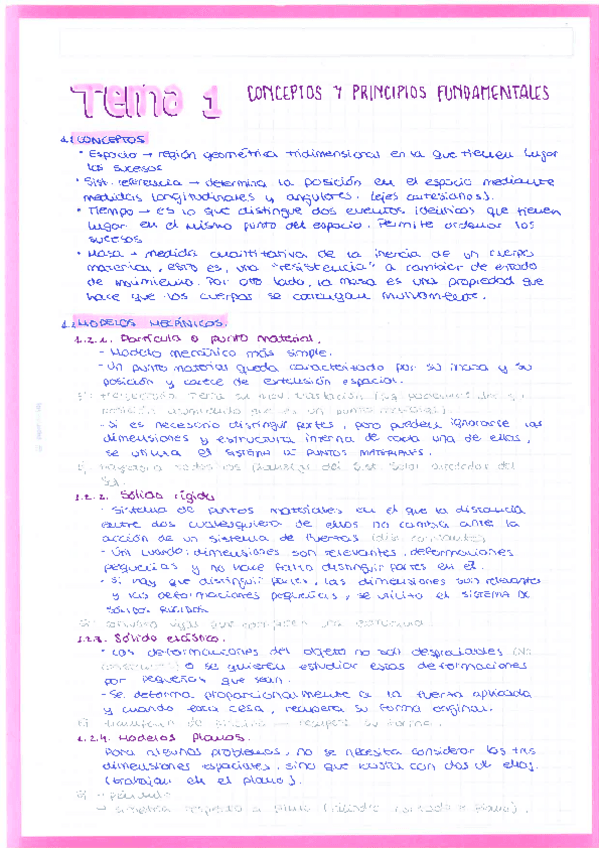 Tema 1 CONCEPTOS Y PRINCIPIOS FUNDAMENTALES
1.1 CONCEPTOS
• Espacio → región geométrica tridimensional en la que tienen lugar
los sucesos
• Sist. referencia → determina la posición en el espacio mediante
medidas longitudinales y angulares. (ejes cartesianos).
• Tiempo → es lo que distingue dos eventos idénticos que tienen
lugar en el mismo punto del espacio. Permite ordenar los
sucesos
• Masa → medida cuantitativa de la inercia de un cuerpo
material, esto es, una "resistencia" a cambiar de estado
de movimiento. Por otro lado, la masa es una propiedad que
hace que los cuerpos se atraigan mutuamente.
1.2 MODELOS MECÁNICOS.
1.2.1. Partícula o punto material.
- Modelo mecánico más simple.
- Un punto material queda caracterizado por su masa y su
posición y carece de extensión espacial.
- Si es necesario distinguir partes, pero pueden ignorarse las
dimensiones y estructura interna de cada una de ellas,
se utiliza el SISTEMA DE PUNTOS MATERIALES.
del Sist. Solar alrededor del
Sol.
1.2.2. Sólido rígido
- Sistema de puntos materiales en el que la distancia
entre dos cualesquiera de ellos no cambia ante la
acción de un sistema de fuerzas
- Útil cuando: dimensiones son relevantes, deformaciones
pequeñas y no hace falta distinguir partes en él.
- Si hay que distinguir partes, las dimensiones son relevantes
y las deformaciones pequeñas, se utiliza el SISTEMA DE
SÓLIDOS RÍGIDOS
que componen una estructura.
Sólido elástico.
- Las deformaciones del objeto no son despreciables
o se quieren estudiar esas deformaciones
por pequeñas que sean.
- Se deforma proporcionalmente a la fuerza aplicada
y cuando esta cesa, recupera su forma original.
recupera su forma.
1.2.4. Modelos planos.
Para algunos problemas, no se necesita considerar las tres
dimensiones espaciales, sino que basta con dos de ellas.
(trabajar en el plano).
- péndulo
- simetría respecto a plano